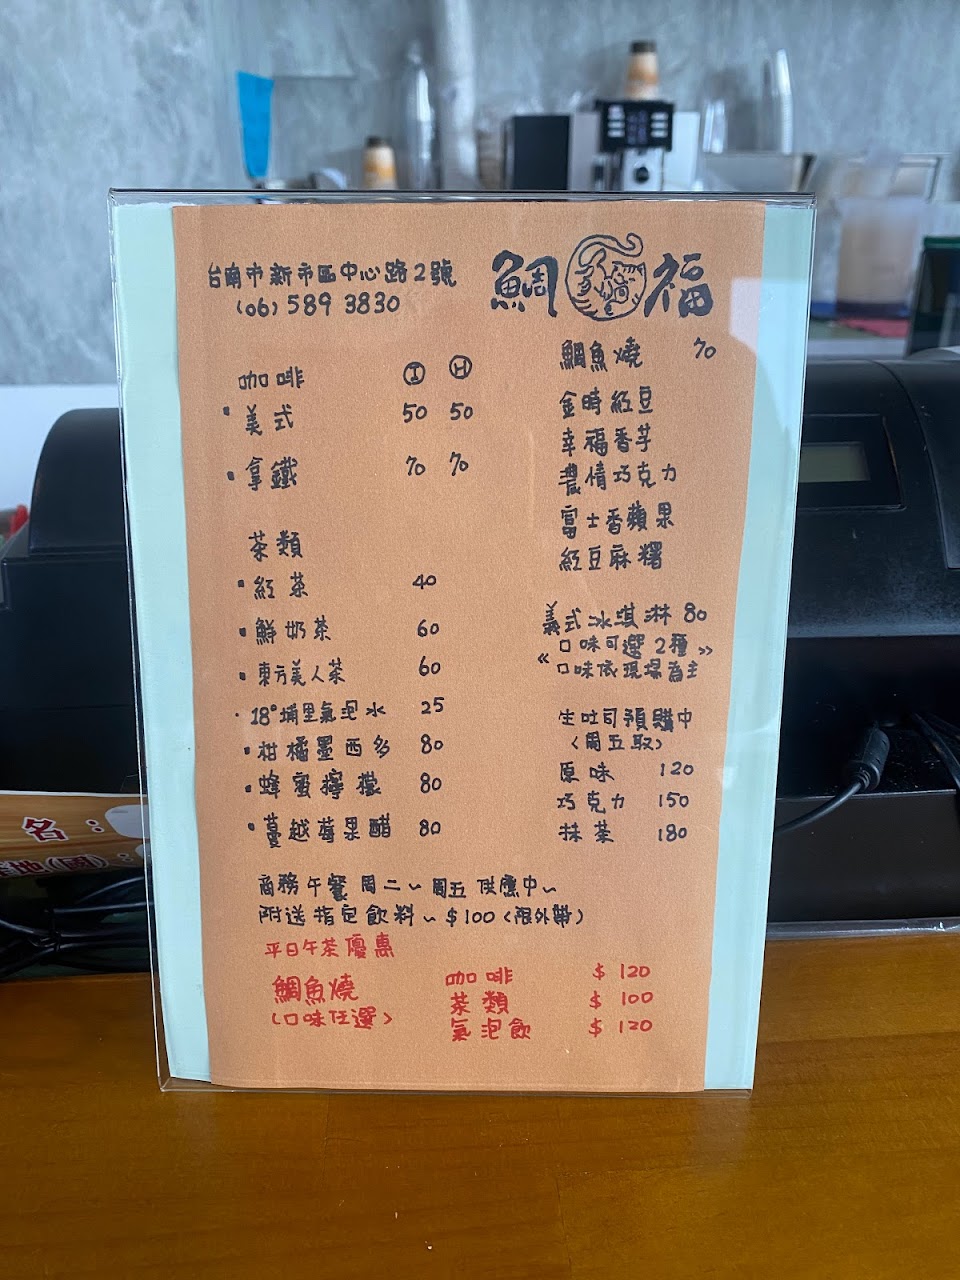 台南市新市區中心路2號
(06) 589 3830
鯛 福
咖啡 I H
・美式 50 50
・拿鐵 70 70
茶類
・紅茶 40
・鮮奶茶 60
・東方美人茶 60
・18°埔里氣泡水 25
・柑橘墨西多 80
・蜂蜜檸檬 80
・蔓越莓果醋 80
鯛魚燒 70
金時紅豆
幸福香芋
濃情巧克力
富士香蘋果
紅豆麻糬
義式冰淇淋 80
《口味可選2種》
口味依現場為主
生吐司預購中
(周五取)
原味 120
巧克力 150
抹茶 180
商務午餐 周二~周五 供應中~
附送指定飲料~$100(限外帶)
平日午茶優惠
鯛魚燒
(口味任選)
咖啡 $ 120
茶類 $ 100
氣泡飲 $ 120
名:
產地(國):